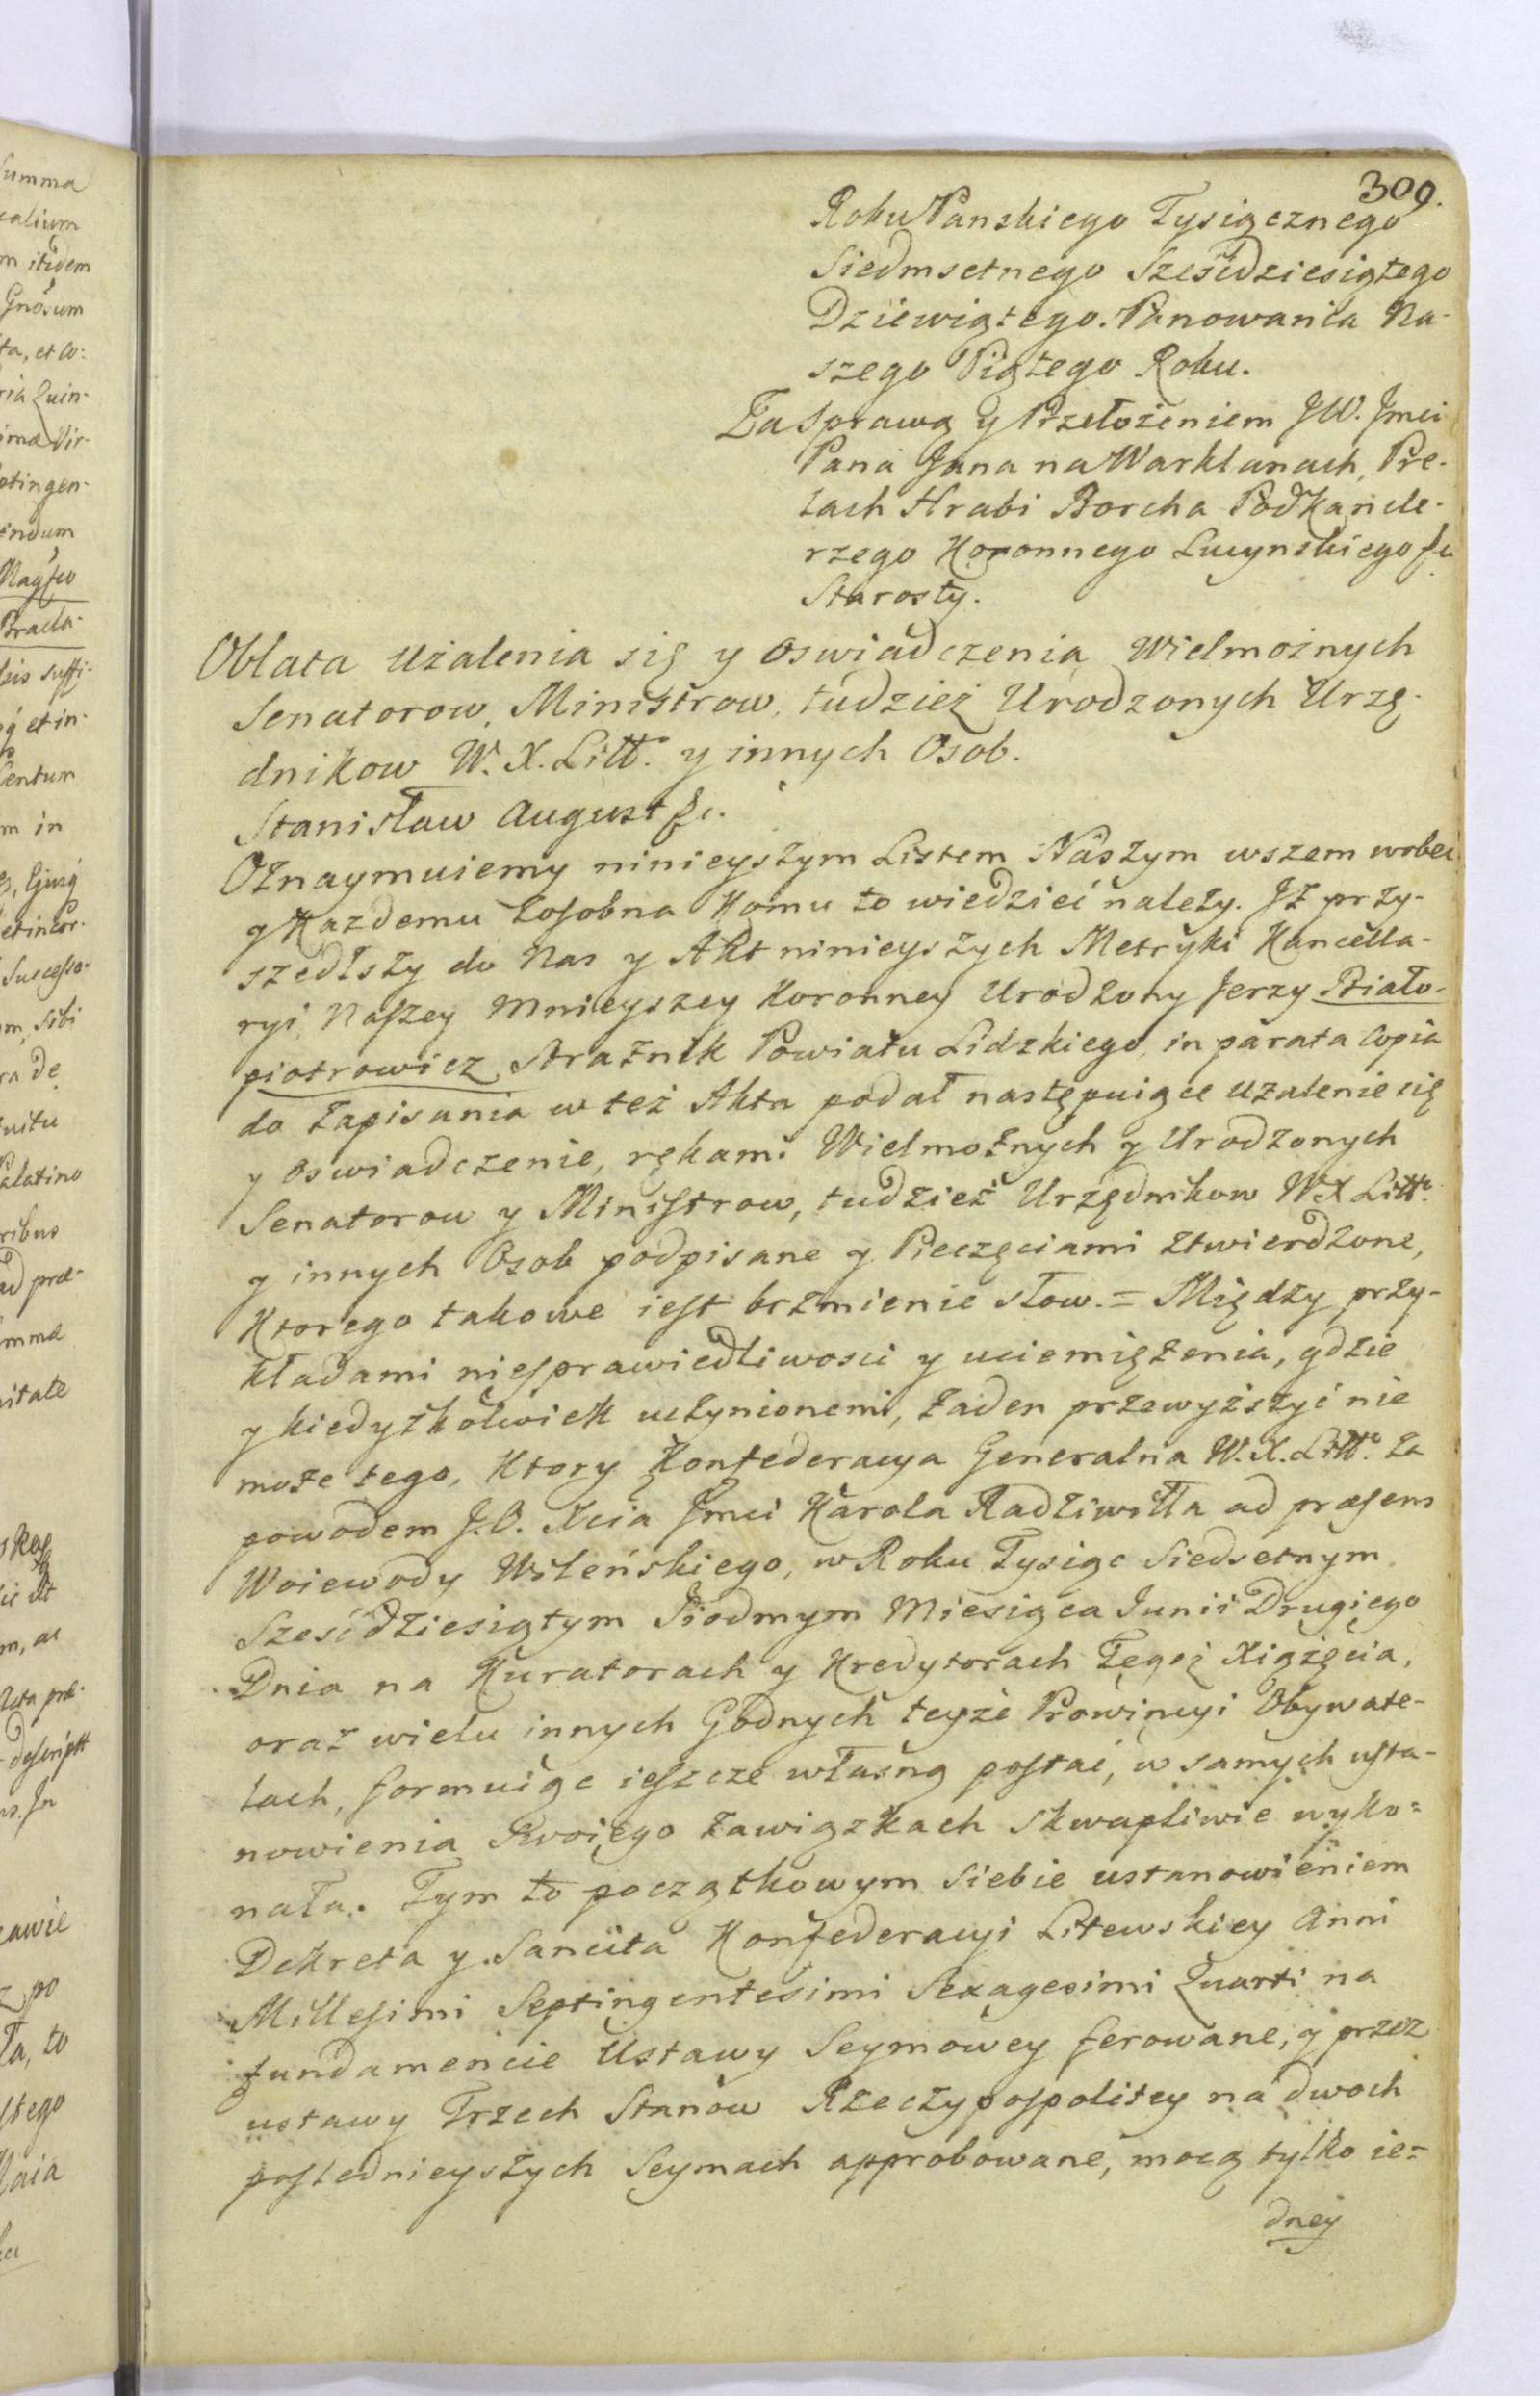 309.
Roku Panskiego Tysiącznego
Siedmsetnego Sześćdziesiątego
Dziewiątego. Panowania Na-
szego Piątego Roku.
Za Sprawą y Przełożeniem JW. Jmci
Pana Jana na Warklanach, Pre-
lach Hrabi Borcha PodKancle-
rzego Koronnego Lucynskiego &c
Starosty.
Oblata Użalenia się y Oswiadczenia Wielmożnych
Senatorow, Ministrow, tudzież Urodzonych Urzę-
dnikow W. X. Litt. y innych Osob.
Stanisław August &c.
Oznaymuiemy ninieyszym Listem Naszym wszem wobec
y Każdemu zosobna Komu to wiedzieć należy. Iż przy-
szedłszy do Nas y Akt ninieyszych Metryki Kancella-
ryi Naszey Mnieyszey Koronney Urodzony Jerzy Biało-
piotrowicz Strażnik Powiatu Lidzkiego, in parata Copia
do zapisania w też Akta podał następuiące użalenie się
y oswiadczenie, rękami Wielmożnych y Urodzonych
Senatorow y Ministrow, tudzież Urzędnikow W X Litt.
y innych Osob podpisane y Pieczęciami ztwierdzone,
Ktorego takowe iest brzmienie słow. = Między przy-
kładami niesprawiedliwosci y uciemiężenia, gdzie
y kiedyżkolwiek uczynionemi, żaden przewyższyć nie
może tego, Ktory Konfederacya Generalna W. X. Litt. za
powodem J. O. Xcia Jmci Karola Radziwiłła ad præsens
Woiewody Wileńskiego, w Roku Tysiąc Siedsetnym
Sześćdziesiątym Siodmym Miesiąca Junii Drugiego
Dnia na Kuratorach y Kredytorach Tegoż Xiążęcia,
oraz wielu innych Godnych teyże Prowincyi Obywate-
lach, formuiąc ieszcze własną postać, w samych usta-
nowienia Swoiego zawiązkach skwapliwie wyko=
nała. Tym to początkowym siebie ustanowieniem
Dekreta y Sancita Konfederacyi Litewskiey Anni
Millesimi Septingentesimi Sexagesimi Quarti na
fundamencie Ustawy Seymowey ferowane, y przez
ustawy Trzech Stanow Rzeczypospolitey na dwoch
poslednieyszych Seymach approbowane, mocą tylko ie=
dney